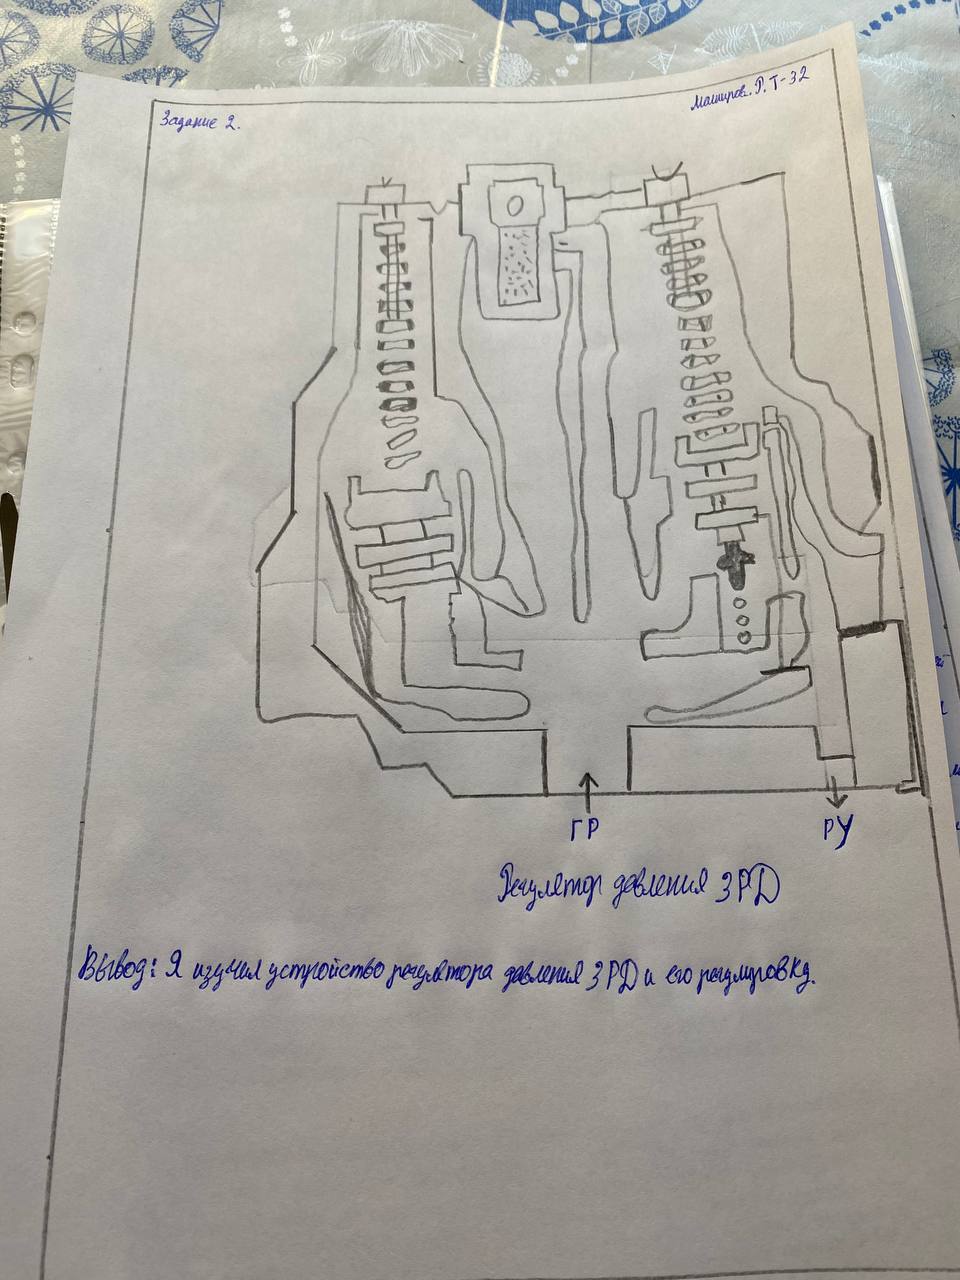 Задание 2.
Маширов. Р. Т-32
ГР
РУ
Регулятор давления 3РД
Вывод: Я изучил устройство регулятора давления 3РД и его регулировку.